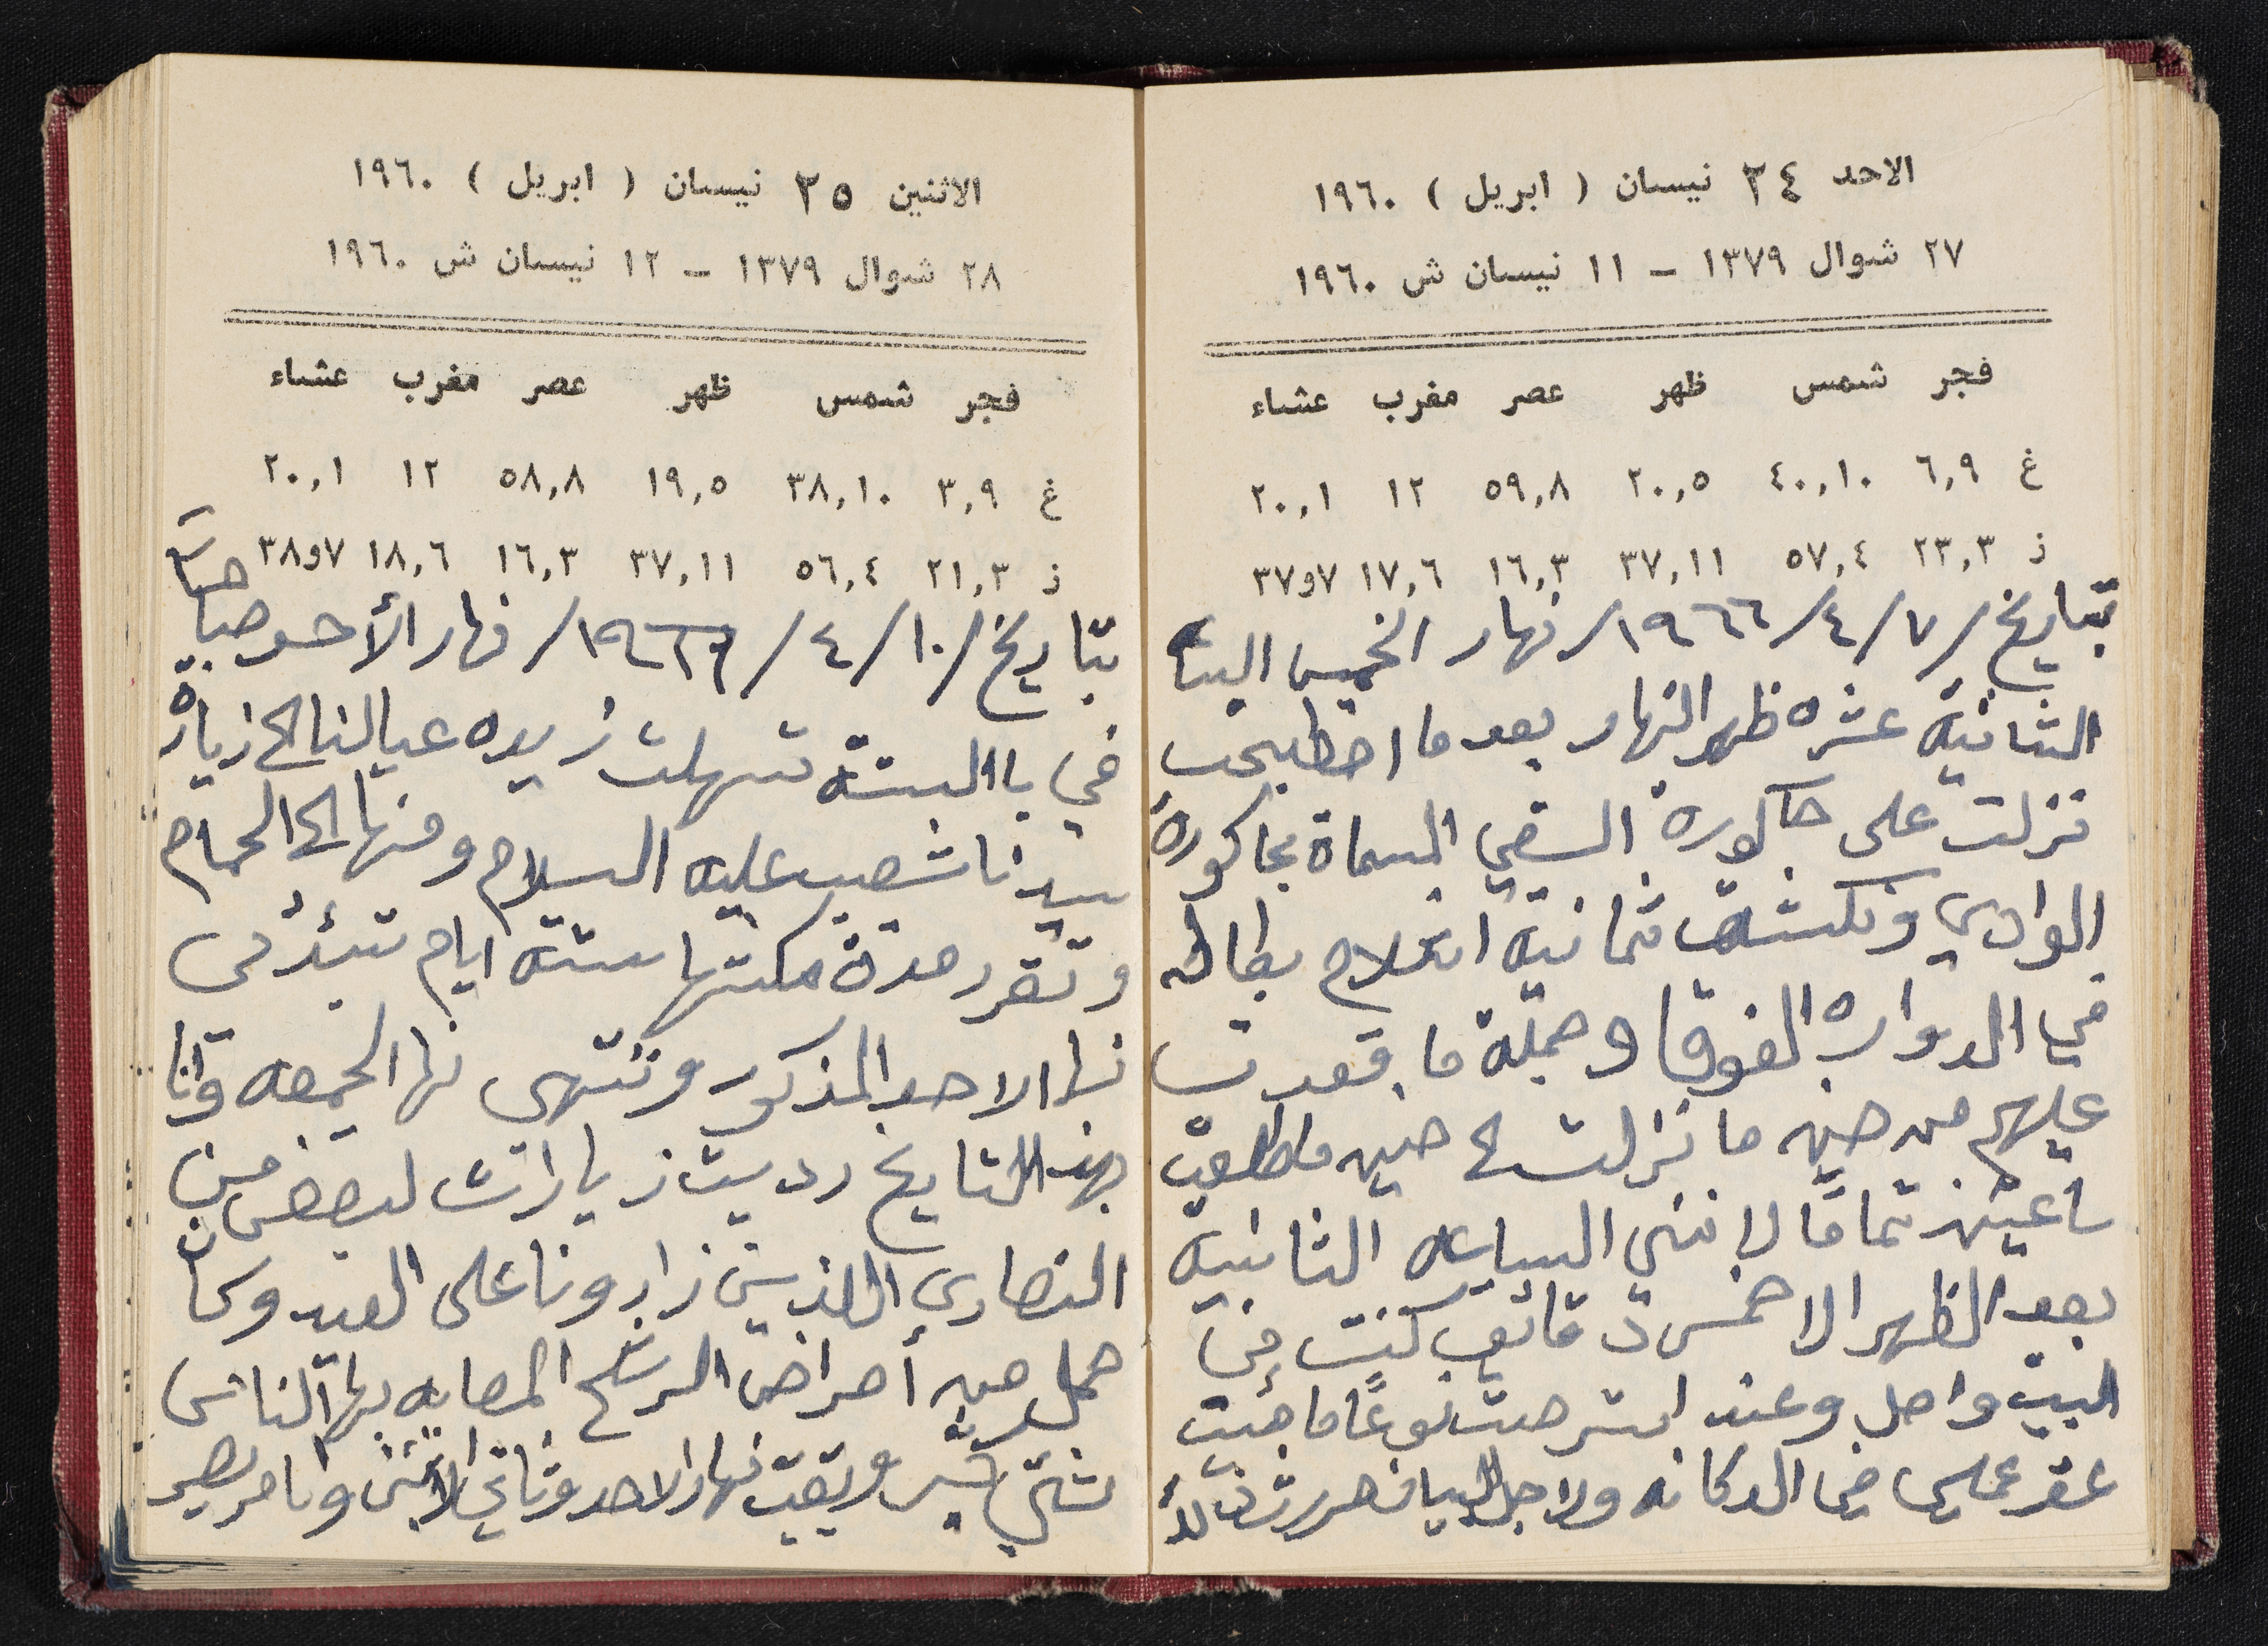 الاحد ٢٤ نيسان ( ابريل ) ١٩٦٠
٢٧ شوال ١٣٧٩ - ١١ نيسان ش ١٩٦٠
فجر شمس ظهر عصر مغرب عشاء
غ ٦,٩ ٤٠,١٠ ٢٠,٥ ٥٩,٨ ١٢ ٢٠,١
ز ٢٣,٣ ٥٧,٤ ٣٧,١١ ١٦,٣ ١٧,٦ ٧و٣٧
بتاريخ/٧/٤/١٩٦٦/نهار الخميس الساعه
الثانية عشره ظهر النهار بعد ما
نزلت على حاكورة السقي المسماة بحاكورة
الوادي ونكشة ثمانية اتلام بطاطه
في الدواره الفوقا وجملة ما قعدت
عليهم من حين ما نزلت لحين ما طلعت
ساعتين تمامًا لانني الساعه الثانية
بعد الظهر الا خمس دقائق كنت في
البيت واصل وعند استرحت نوعًا ما جيت
عقر عملي في الدكانه ولاجل البيان حررت ذالك
الاثنين ٢٥ نيسان ( ابريل ) ١٩٦٠
٢٨ شوال ١٣٧٩ - ١٢ نيسان ش ١٩٦٠
فجر شمس ظهر عصر مغرب عشاء
غ ٣,٩ ٣٨,١٠ ١٩,٥ ٥٨,٨ ١٢ ٢٠,١
ز ٢١,٣ ٥٦,٤ ٣٧,١١ ١٦,٣ ١٨,٦ ٧و٣٨
بتاريخ/١٠/٤/١٩٦٦/نهار الأحد صباحاً
في باالبسته تسهلت زيده عيالنا الى زيارة
سيدنا شعيب عليه السلام ومنها الى الحمام
وتقرر مدة مكثها ستة ايام تبدُئ من
نهار الاحد المذكور وتنتهي نهار الجمعه وانا
بهذ التايخ رديت زيارات لبعض من
النصارى الذين زارونا على العيد وكان
حمل من أمراض الرشح المصابه بها الناس
وبقيت نهار الاحد وثاني الاثنين